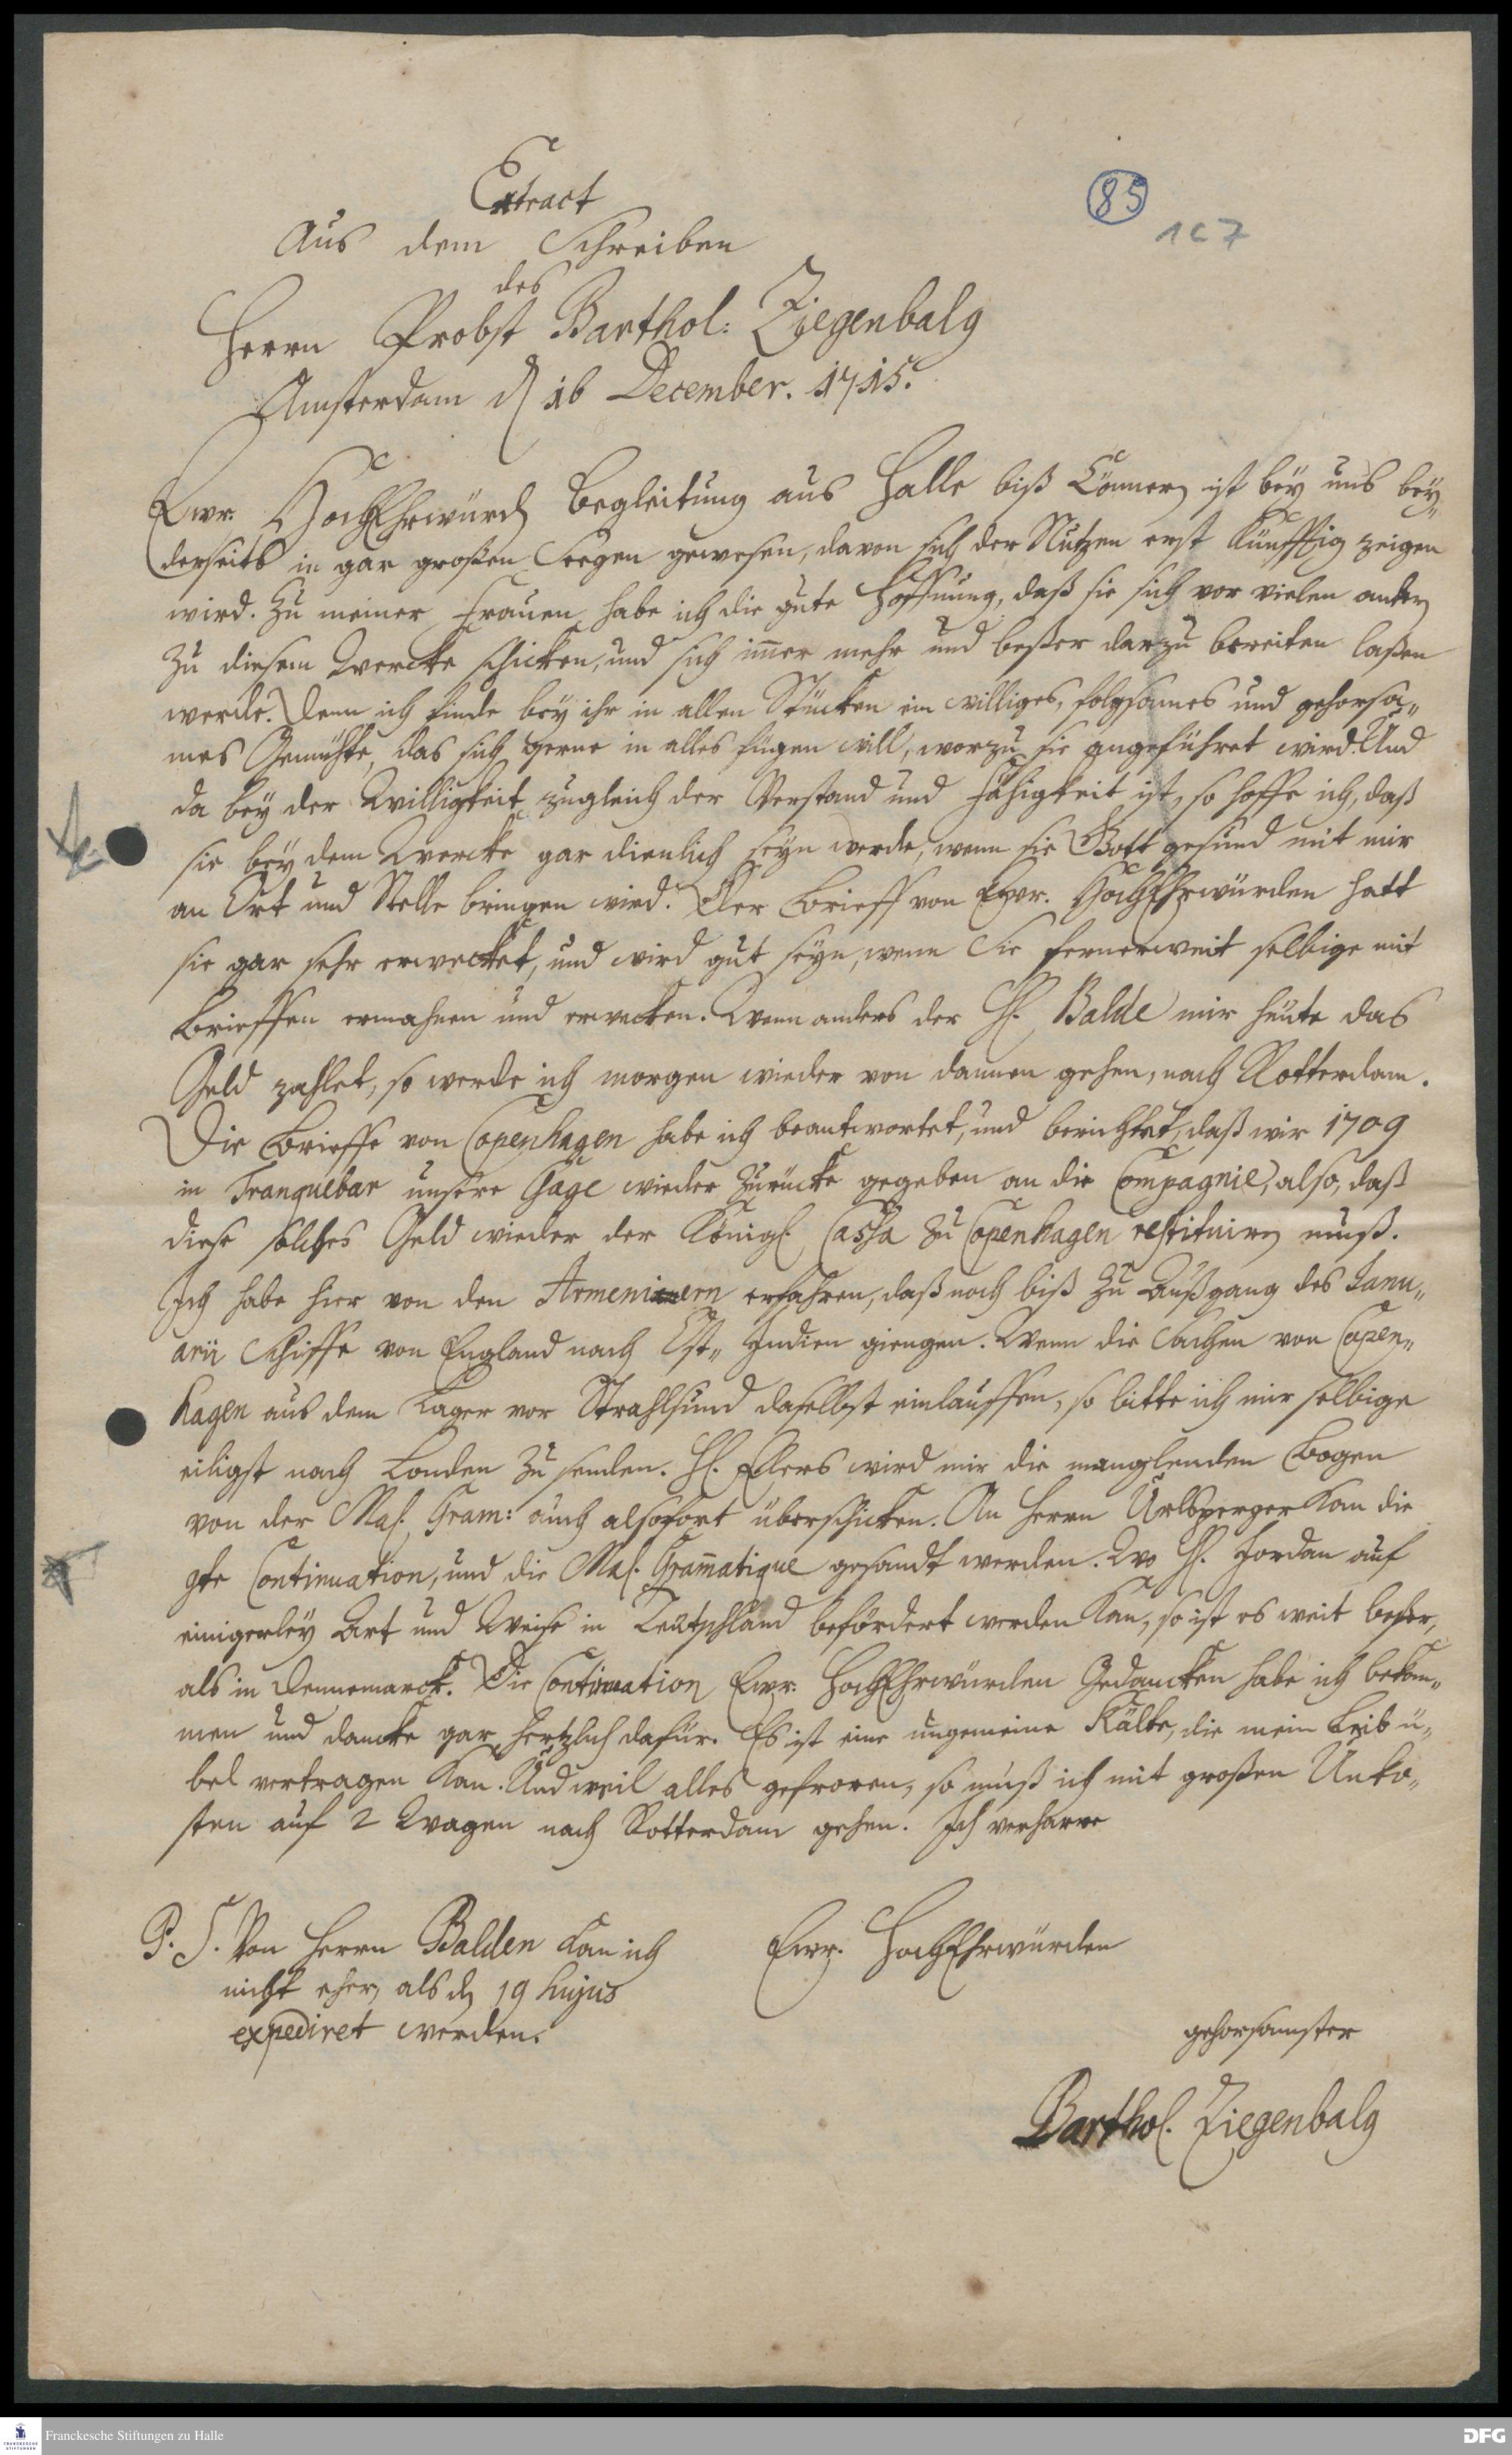 Extract
85
Aus dem Schreiben
des
Herrn Probst Barthol: Ziegenbalg
Amsterdam d. 16 December. 1715.
Ewr. HochEhrwürd. Begleitung aus Halle biß Cönnern ist bey uns bey„
derseits in gar großen Seegen gewesen, davon sich der Nutzen erst künfftig zeigen
wird. Zu meiner Frauen habe ich die gute Hoffnung, daß sie sich vor vielen andern
zu diesem Wercke schicken, und sich im̄er mehr und beßer darzu bereiten laßen
werde. Denn ich finde bey ihr in allen Stücken ein williges, folgsames und gehorsa„
mes Gemüthe, das sich gerne in alles fügen will, worzu sie angeführet wird. Und
da bey der Willigkeit zugleich der Verstand und Fähigkeit ist, so hoffe ich, daß
sie bey dem Wercke gar dienlich seyn werde, wenn sie Gott gesund mit mir
an Ort und Stelle bringen wird. Der Brieff von Ewr. HochEhrwürden hatt
sie gar sehr erwecket, und wird gut seyn, wenn Sie fernerweit selbige mit
Brieffen ermahnen und erwecken. Wenn anders der H. Balde mir heute das
Geld zahlet, so werde ich morgen wieder von dannen gehen, nach Rotterdam.
Die Brieffe von Copenhagen habe ich beantwortet, und berichtet, daß wir 1709
in Tranquebar unsere Gage wieder zurücke gegeben an die Compagnie, also, daß
diese solches Geld wieder der Königl. Cassa zu Copenhagen restituiren muß.
Ich habe hier von den Armeniern erfahren, daß noch biß zu Außgang des Janu„
arii Schiffe von England nach Ost„ Indien giengen. Wenn die Sachen von Copen„
hagen aus dem Lager vor Strahlsund daselbst einlauffen, so bitte ich mir selbige
eiligst nach Londen zu senden. H. Elers wird mir die manglenden Bogen
von der Mal. Gram: auch alsofort überschicken. An Herrn Urlsperger kan die
9te Continuation, und die Mal. Gram̄atique gesandt werden. Wo H. Jordan auf
einigerley Art und Weise in Teutschland befördert werden kan, so ist es weit beßer,
als in Dennemarck. Die Continuation Ewr. HochEhrwürden Gedancken habe ich bekom„
men und dancke gar hertzlich dafür. Es ist eine ungemeine Kälte, die mein Leib ü„
bel vertragen kan. Und weil alles gefroren, so muß ich mit großen Unko„
sten auf 2 Wagen nach Rotterdam gehen. Ich verharre
Ewr. HochEhrwürden
P. S. Von Herrn Balden kan ich
nicht eher, als d. 19 hujus
expediret werden.
gehorsamster
Barthol. Ziegenbalg
Franckesche Stiftungen zu Halle
DFG